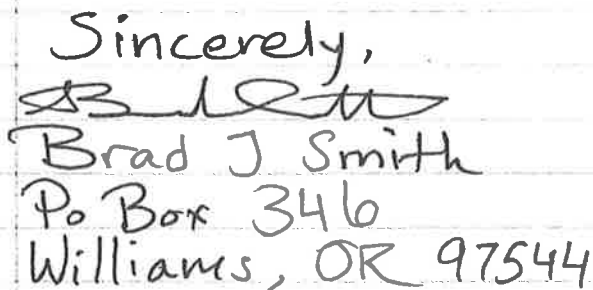 Sincerely,
Brad J Smith
Po Box 346
Williams, OR 97544